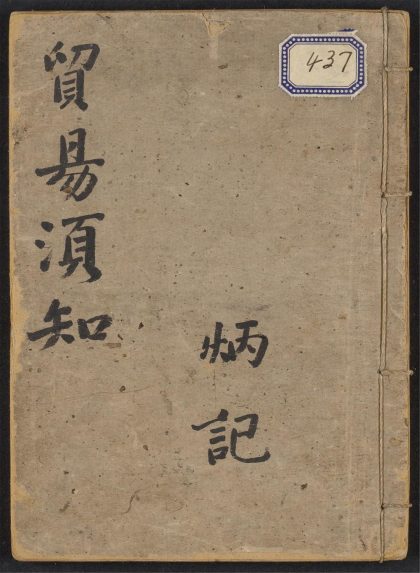 437
貿易須知
炳記